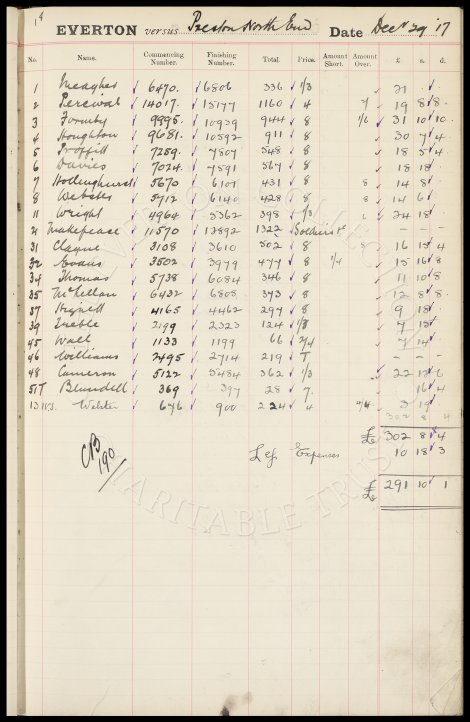 14
EVERTON versus Preston North End Date Decr 29 '17
No. Name. Commencing Number. Finishing Number. Total. Price. Amount Short. Amount Over. £ s. d.
1 Meagher 6470. 6806 336 1/3 21 -
2 Percival 14017. 15177 1160 4 19 8 8
3 Formby 9995. 10939 944 8 31 10 10
4 Houghton 9681. 10592 911 8 30 7 4
5 Proffitt 7259. 7807 548 8 18 5 4
6 Davies 7024. 7591 567 8 18 18
7 Hollinghurst 5670 6101 431 8 8 14 8
8 Webster 5712 6140 428 8 8 14 6
11 Wright 4964 5362 398 1/3 24 18
21 Makepeace 11570 12892 1322 Soldiers - - -
31 Clague 3108 3610 502 8 8 16 15 4
32 Evans 3502 3979 477 8 1/4 15 16 8
34 Thomas 5738 6084 346 8 11 10 8
35 McLellan 6432 6805 373 8 12 8 8
37 Hignett 4165 4462 297 8 9 18
39 Treble 2199 2323 124 1/3 7 15
45 Wall 1133 1199 66 2/4 7 14
46 Williams 2495 2714 219 T - - -
48 Cameron 5122 5484 362 1/3 22 12 6
51T Blundell 369 397 28 7. 16 4
13 Webster 676 900 224 4 3 19
302 8 4
£ 302 8 4
Less Expenses 10 18 3
£ 291 10 1
CB 190/
CHARITABLE TRUST